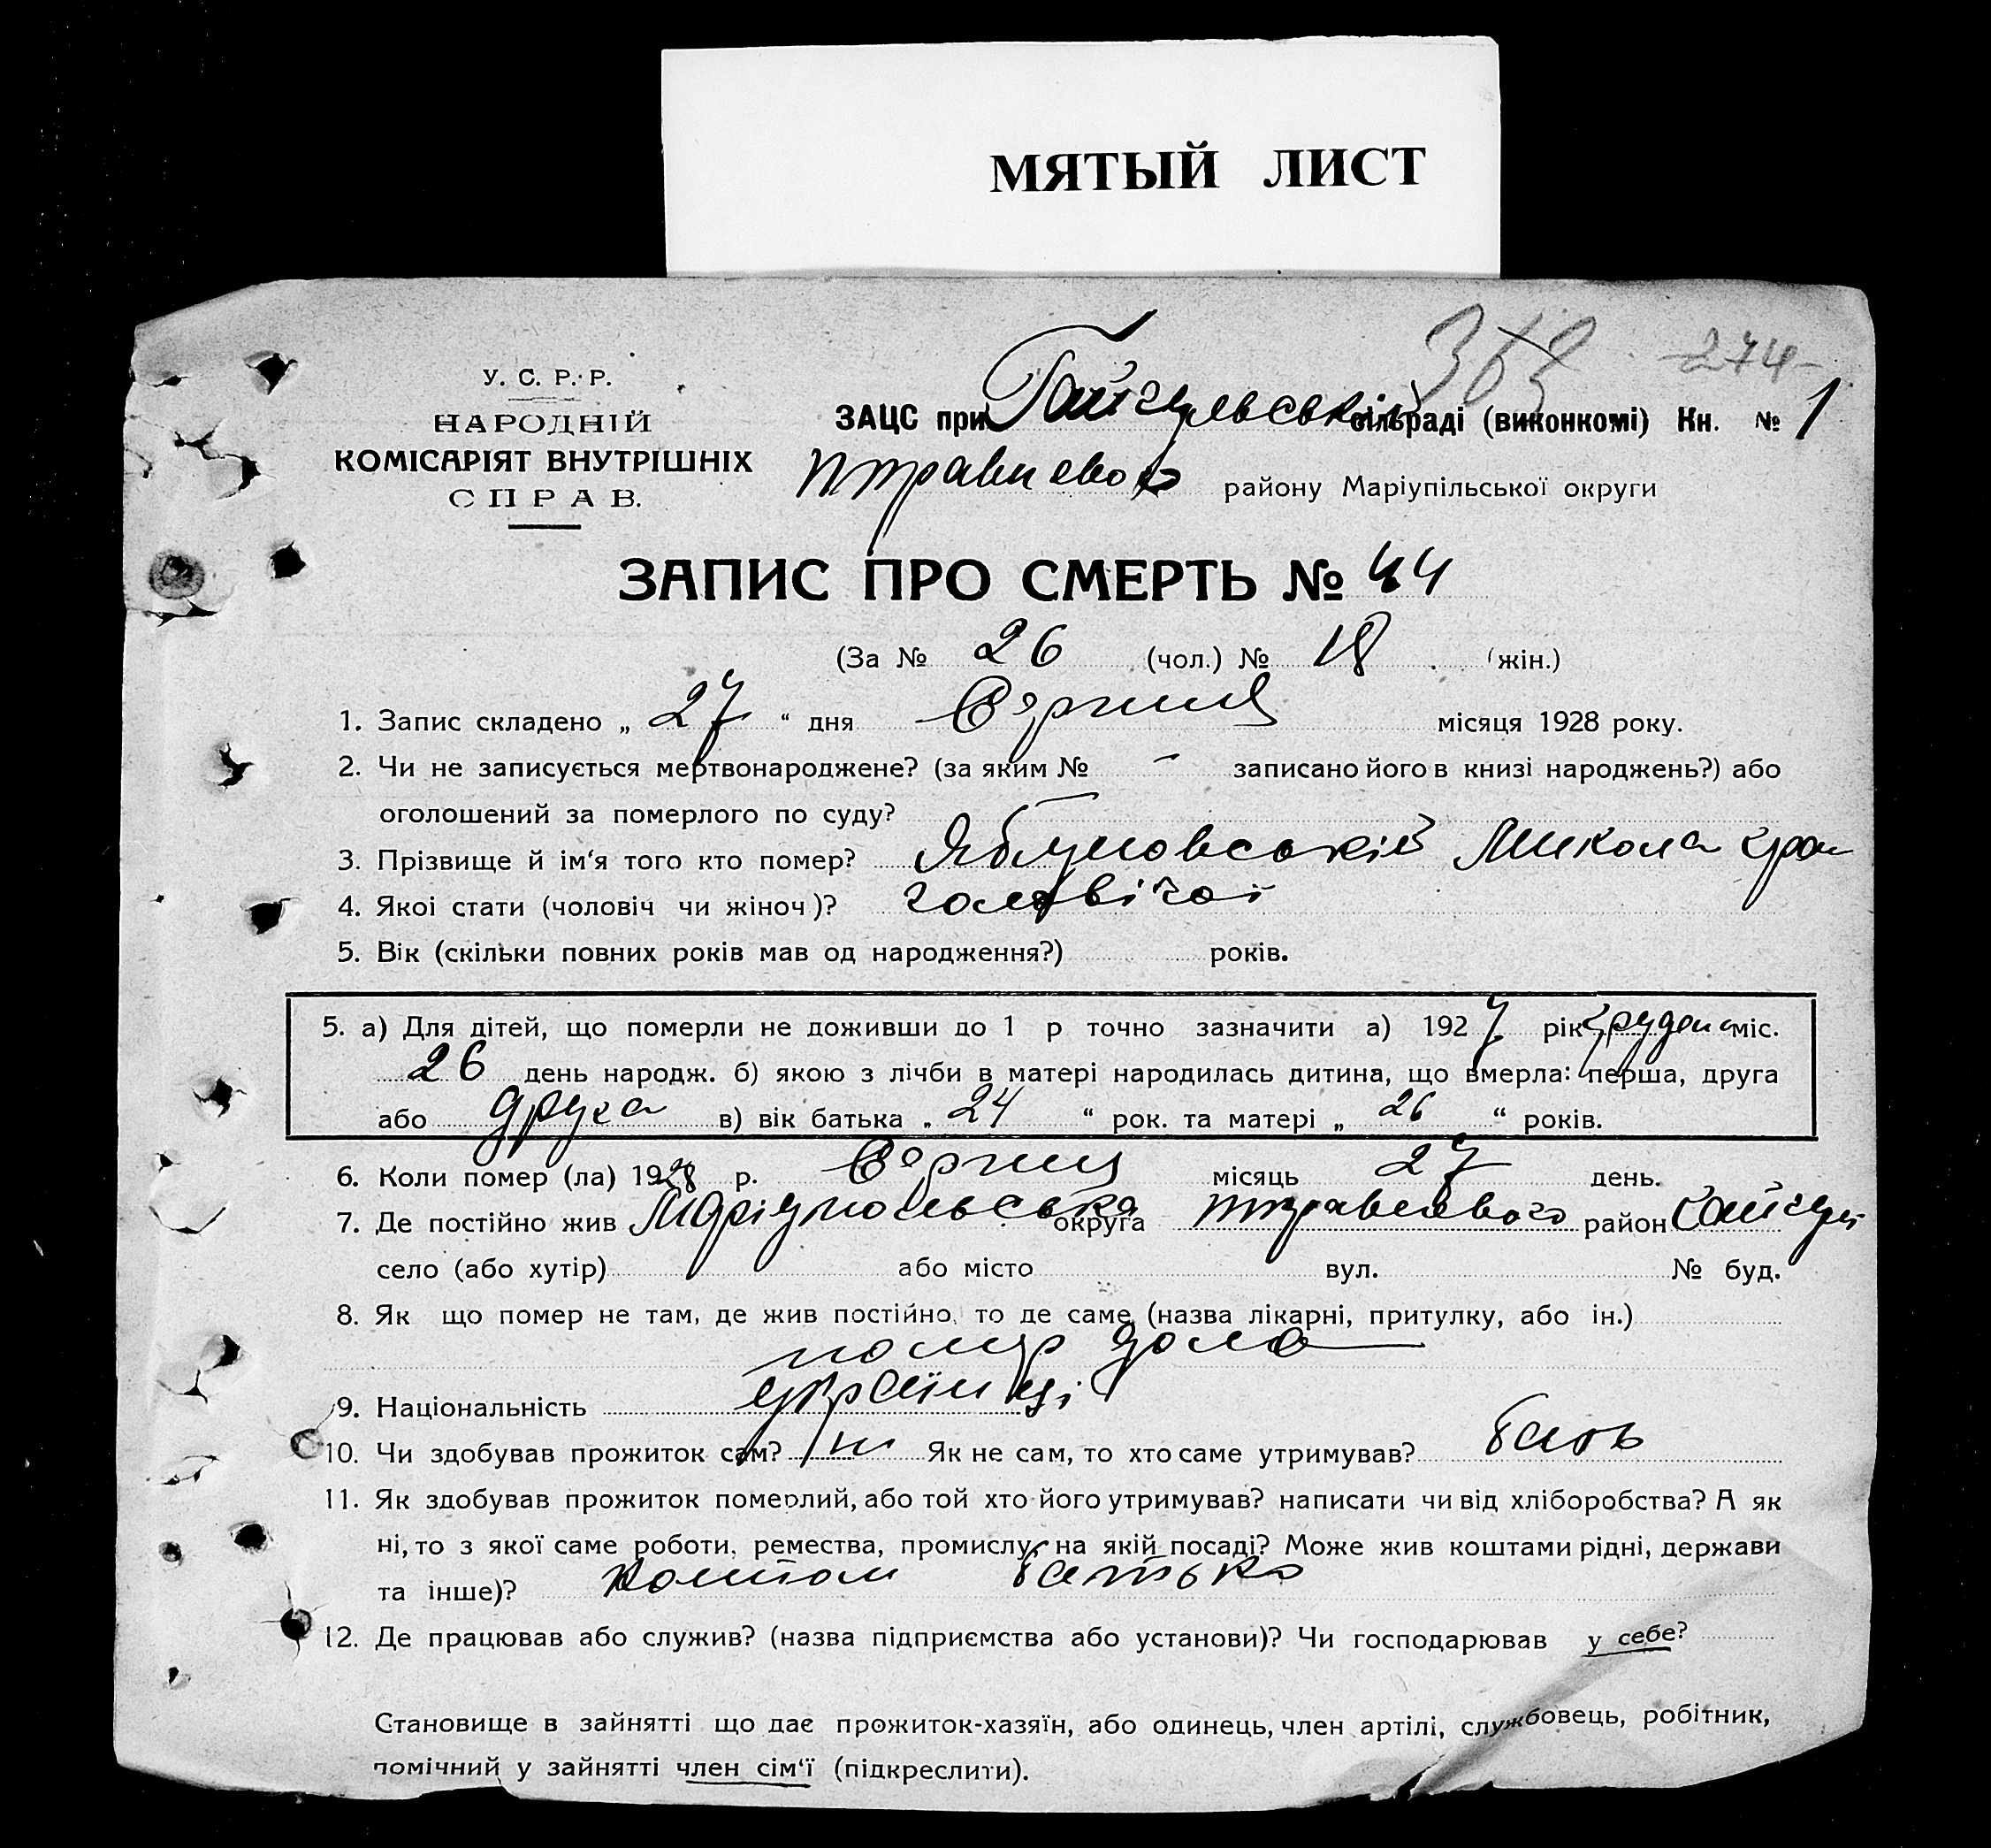 МЯТЫЙ ЛИСТ
274
У. С. Р. Р.
НАРОДНІЙ
КОМІСАРІЯТ ВНУТРІШНІХ
СПРАВ.
ЗАЦС при сільраді (виконкомі) Кн. № 1
району Маріупільської округи
ЗАПИС ПРО СМЕРТЬ № 44
(За № 26 (чол.) № 18 (жін.)
1. Запис складено „ 27 “ дня Серпня місяця 1928 року.
2. Чи не записується мертвонароджене? (за яким № - записано його в книзі народжень?) або
оголошений за померлого по суду? —
3. Прізвище й ім'я того кто помер? Яблуновській Микола
4. Якоі стати (чоловіч чи жіноч)? чоловічоі
5. Вік (скільки повних років мав од народження?) років.
5. а) Для дітей, що померли не доживши до 1 р точно зазначити а) 1927 рік грудень міс.
26 день народж. б) якою з лічби в матері народилась дитина, що вмерла: перша, друга
або друга в) вік батька „ 24 “ рок. та матері „ 26 “ років.
6. Коли помер (ла) 1928 р. Серпня місяць 27 день.
7. Де постійно жив Маріупольська округа район
село (або хутір) або місто вул. № буд.
8. Як що помер не там, де жив постійно, то де саме, (назва лікарні, притулку, або ін.)
помер дома
9. Національність українці
10. Чи здобував прожиток сам? ні Як не сам, то хто саме утримував?
11. Як здобував прожиток померлий, або той хто його утримував? написати чи від хліборобства? А як
ні, то з якої саме роботи, ремества, промислу, на якій посаді? Може жив коштами рідні, держави
та інше)? коштом батька
12. Де працював або служив? (назва підприємства або установи)? Чи господарював у себе?
Становище в зайнятті що дає прожиток-хазяїн, або одинець, член артілі, службовець, робітник,
помічний у зайнятті член сім'ї (підкреслити).